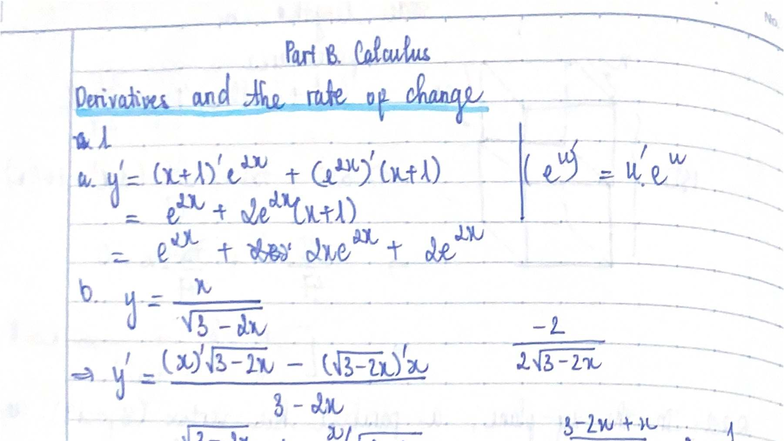 No.
Part B. Calculus
Derivatives and the rate of change
1
a. y' = (x+1)'e^{2x} + (e^{2x})'(x+1)
(e^u)' = u'.e^u
= e^{2x} + 2e^{2x}(x+1)
= e^{2x} + 2xe^{2x} + 2e^{2x}
b. y = x / √(3-2x)
⇒ y' = ((x)'√(3-2x) - (√(3-2x))'x) / (3-2x)
-2 / (2√(3-2x))
3-2x+x